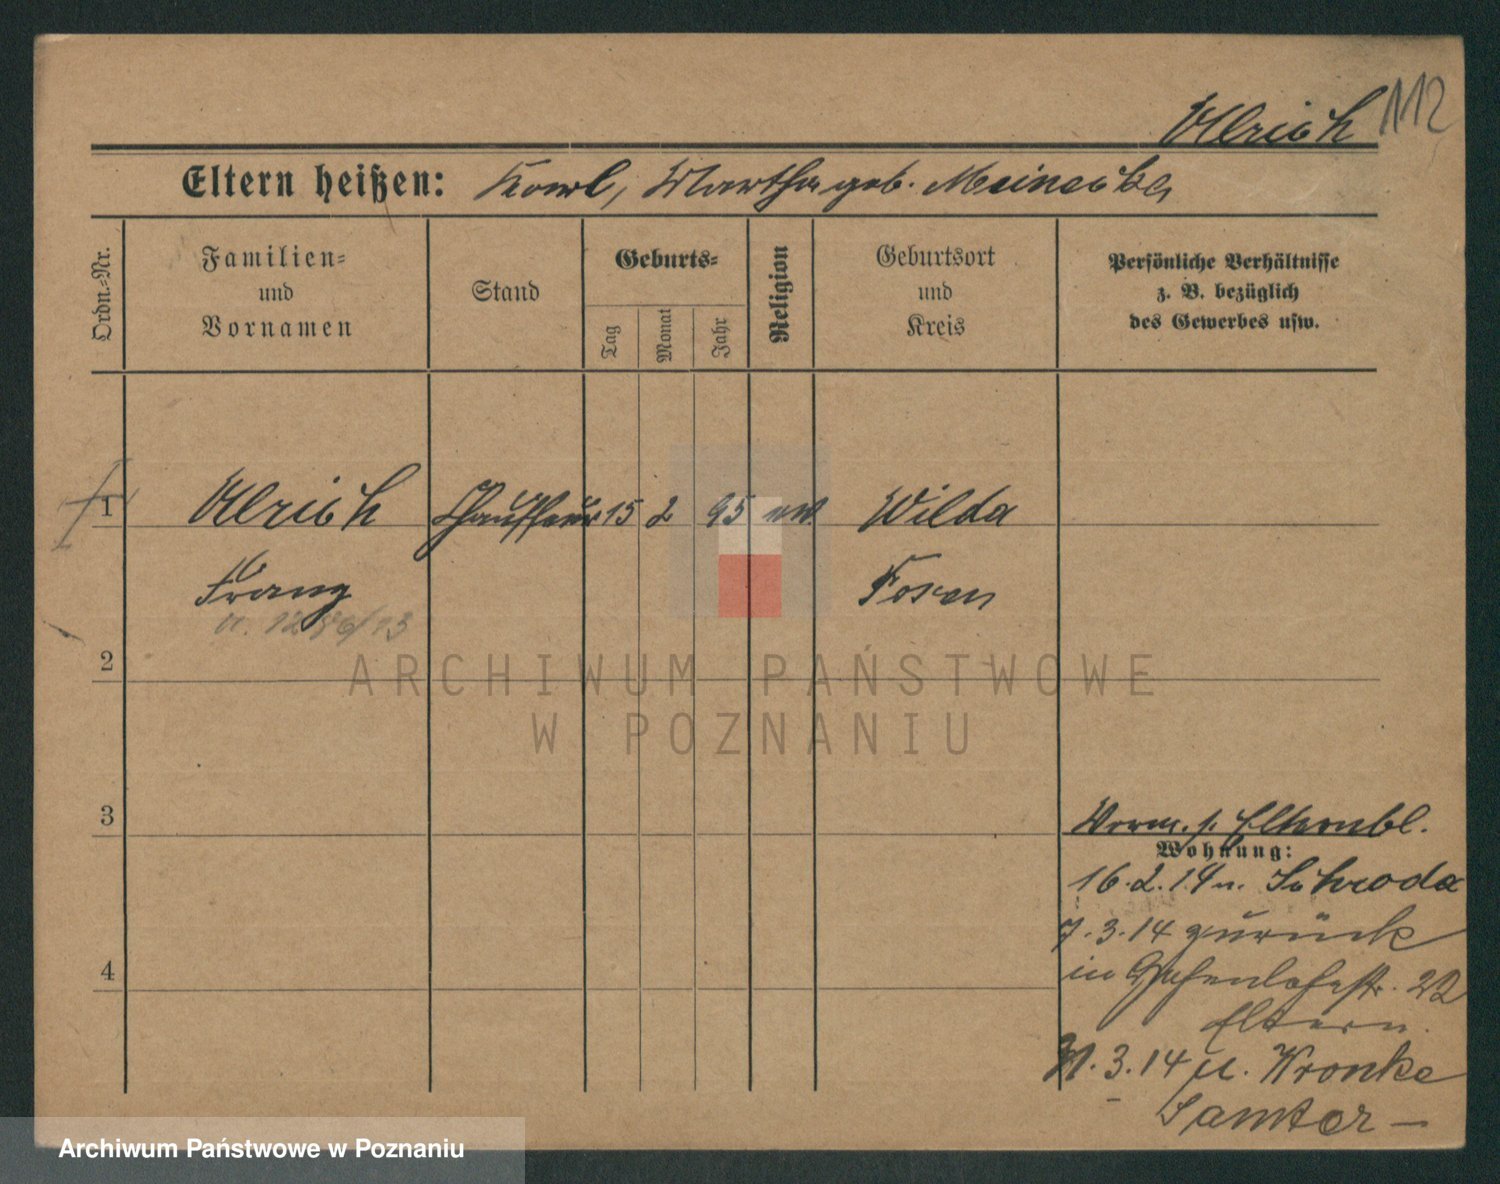 Ulrich 112
Eltern heißen: Karl, Martha geb. Meinecke
Ordn.-Nr.
Familien-
und
Vornamen
Stand
Geburts-
Tag
Monat
Jahr
Religion
Geburtsort
und
Kreis
Persönliche Verhältnisse
z. B. bezüglich
des Gewerbes usw.
1 Ulrich Chauffeur 15 2 95 ev Wilda
Franz Posen
2
ARCHIWUM PAŃSTWOWE
W POZNANIU
3
Vorm. s. Elternbl.
Wohnung:
16.2.14 n. Schroda
7.3.14 zurück
in Hohenlohestr. 22
4
Eltern.
31.3.14 n. Kronke
Samter
Archiwum Państwowe w Poznaniu